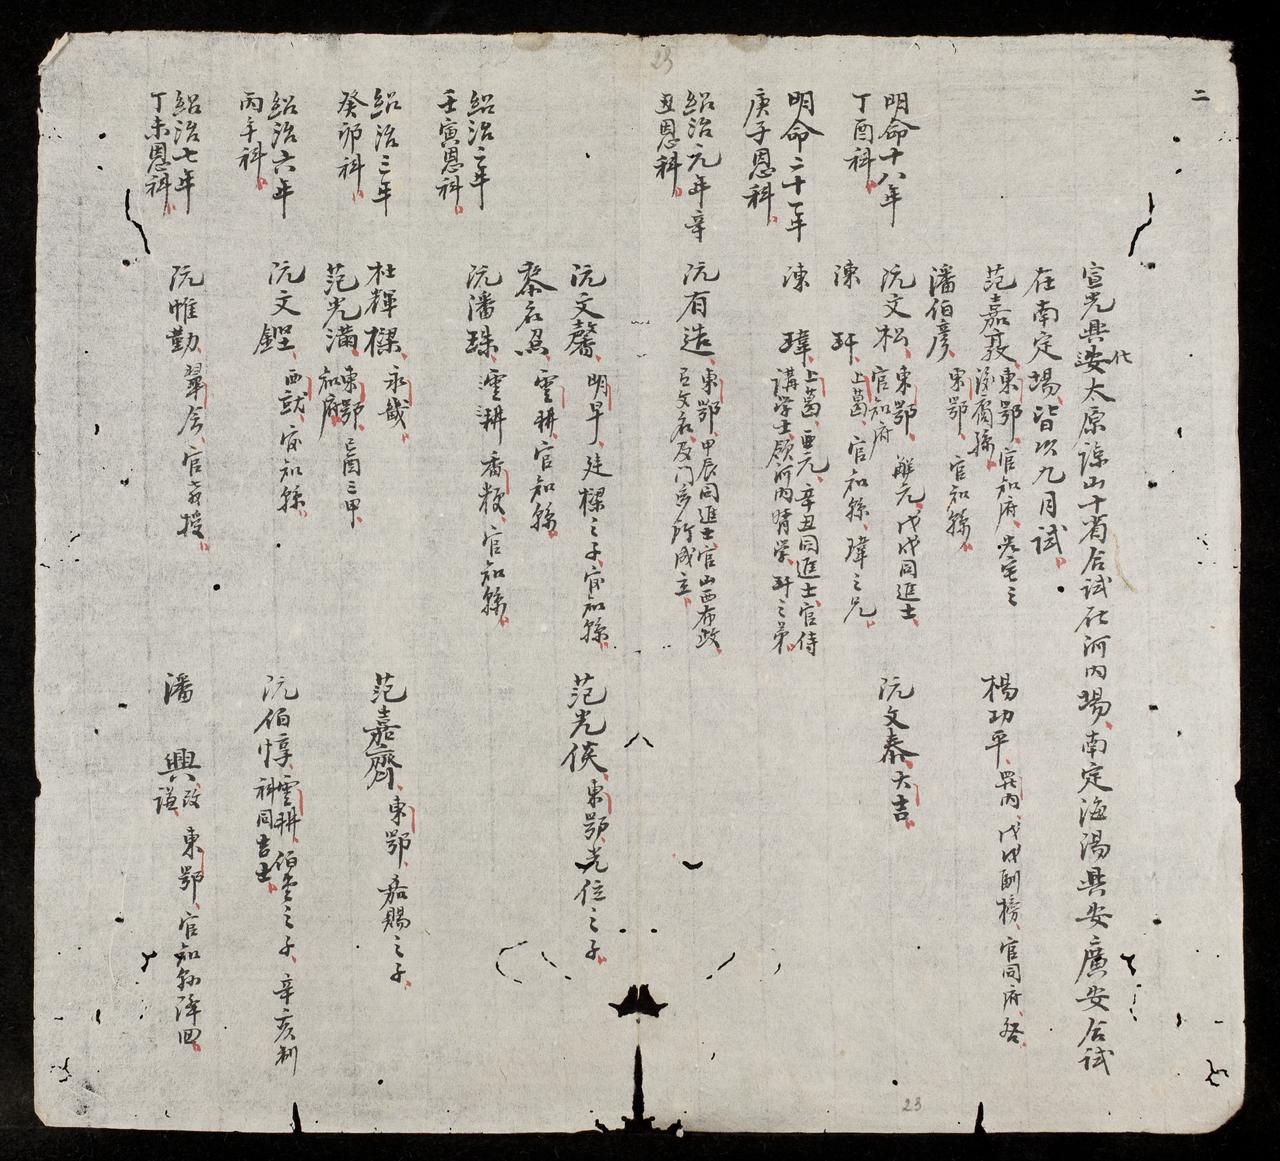 二
23
宣光興安化太原諒山十省合試在河內場南定海陽興安廣安合試
在南定場皆以九月試
范嘉敦 東鄂 官知府 光宅之
孫
楊功平 內 戊戌副榜 官同府
潘伯彥 東鄂 官知縣
明命十八年
丁酉科
阮文松 東鄂 解元 戊戌同進士
官知府
阮文泰 大吉
陳玕 上葛 官知縣 瑋之兄
明命二十一年
庚子恩科
陳瑋 上葛 亞元 辛丑同進士 官侍
講學士領河內督學 玕之弟
紹治元年辛
丑恩科
阮有造 東鄂 甲辰同進士 官山西布政
以文名 及門多所成立
阮文馨 明早 廷樑之子 官知縣
范光倓 東鄂 光位之子
黎名照 雲耕 官知縣
紹治二年
壬寅恩科
阮潘珠 雲耕 香粳 官知縣
紹治三年
癸卯科
杜輝樑 永畿
范嘉齊 東鄂 嘉賜之子
范光滿 東鄂 己酉三甲
知府
紹治六年
丙午科
阮文鏗 西就 官知縣
阮伯惇 雲耕 伯之子 辛亥制
科同吉士
紹治七年
丁未恩科
阮惟勤 翠舍 官教授
潘興 改謹 東鄂 官知縣降回
23